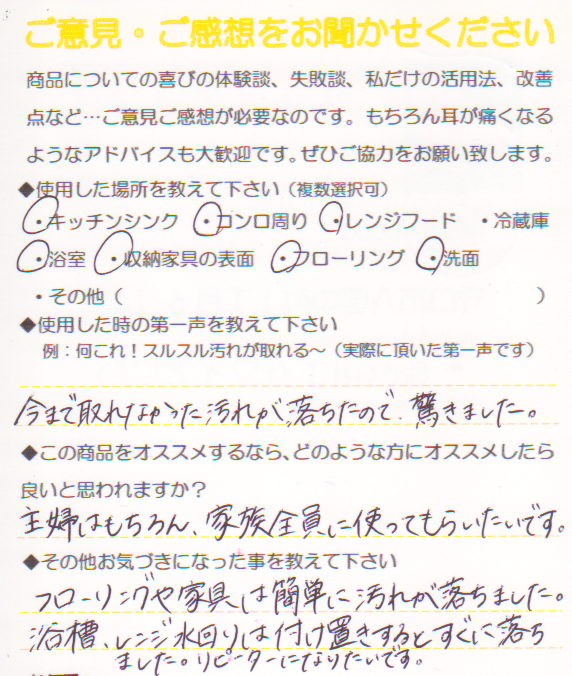 ご意見・ご感想をお聞かせください
商品についての喜びの体験談、失敗談、私だけの活用法、改善
点など…ご意見ご感想が必要なのです。もちろん耳が痛くなる
ようなアドバイスも大歓迎です。ぜひご協力をお願い致します。
◆使用した場所を教えて下さい(複数選択可)
・キッチンシンク ・コンロ周り ・レンジフード ・冷蔵庫
・浴室 ・収納家具の表面 ・フローリング ・洗面
・その他( )
◆使用した時の第一声を教えて下さい
例:何これ!スルスル汚れが取れる〜(実際に頂いた第一声です)
今まで取れなかった汚れが落ちたので、驚きました。
◆この商品をオススメするなら、どのような方にオススメしたら
良いと思われますか?
主婦はもちろん、家族全員に使ってもらいたいです。
◆その他お気づきになった事を教えて下さい
フローリングや家具は簡単に汚れが落ちました。
浴槽、レンジ水回りは付け置きするとすぐに落ち
ました。リピーターになりたいです。